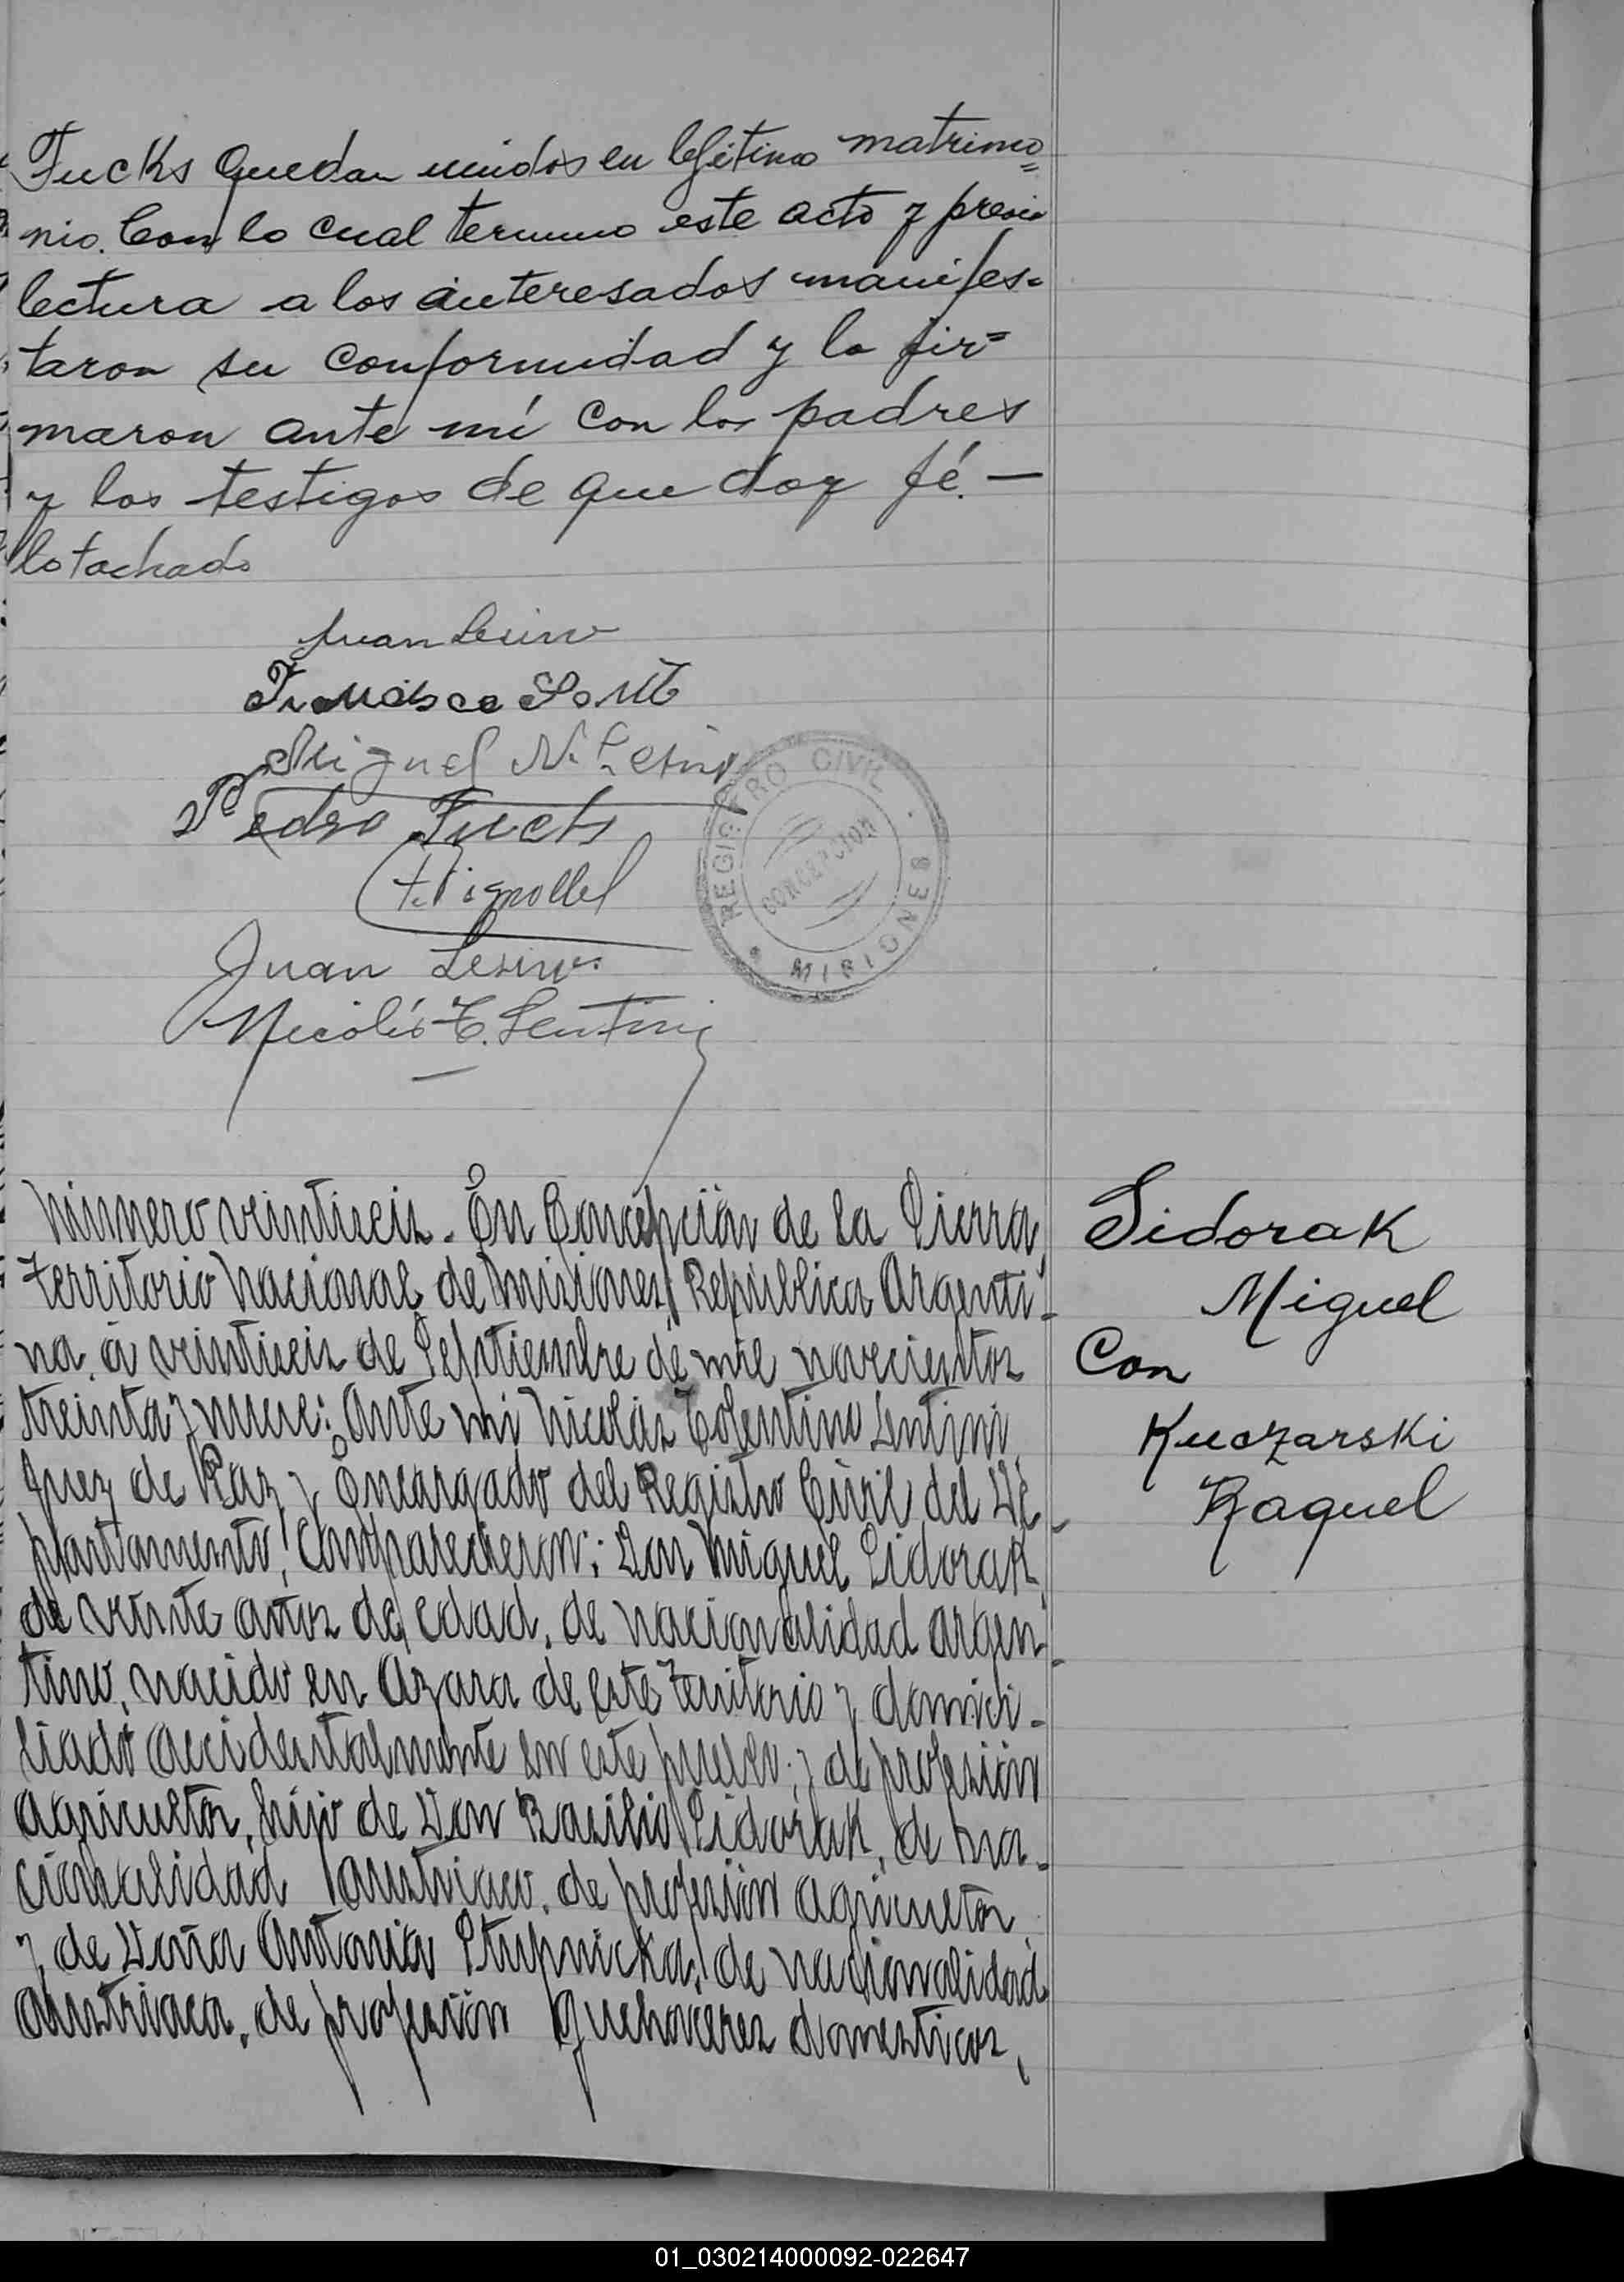 Fucks quedan unidos en legitimo matrimo=
nio. Con lo cual termino este acto y previa
lectura a los interesados manifes=
taron su conformidad y la fir=
maron ante mí con los padres
y los testigos de que doy fé. —
lo tachado
Juan
Francisco
Miguel N.
Pedro Fuchs
Juan
Nicolás T. Lentini
REGISTRO CIVIL
CONCEPCION
MISIONES
Número veintiseis. En Concepción de la Sierra,
Territorio Nacional de Misiones, República Argenti-
na, á veintiseis de Septiembre de mil novecientos
treinta y nueve: Ante mi Nicolás Tolentino Lentini,
Juez de Paz y Encargado del Registro Civil del De-
partamento, Comparecieron: Don Miguel Sidorak,
de veinte años de edad, de nacionalidad argen-
tino, nacido en Azara de este Territorio y domici-
liado accidentalmente en este pueblo; y de profesión
agricultor, hijo de Don Basilio Sidorak, de na-
cionalidad austriaco, de profesión agricultor
y de Doña Antonia Stupnicka, de nacionalidad
austriaca, de profesión quehaceres domesticos,
Sidorak
Miguel
Con
Kuczarski
Raquel
01_030214000092-022647